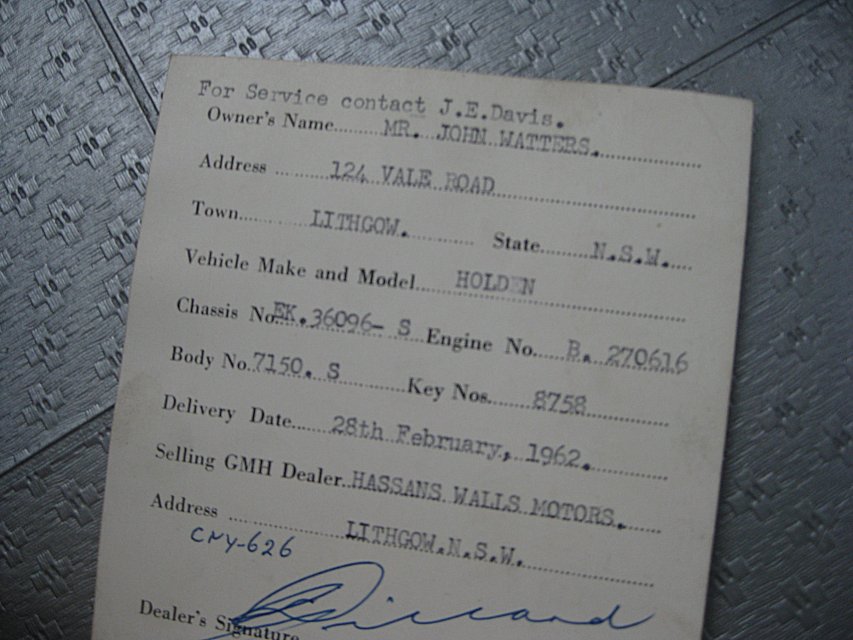 For Service contact J.E.Davis.
Owner's Name........MR. JOHN WATTERS.
Address .........124 VALE ROAD
Town............LITHGOW. State........N.S.W.
Vehicle Make and Model......HOLDEN
Chassis No. EK.36096- S Engine No.....B. 270616
Body No.7150. S Key Nos........8758
Delivery Date......28th February, 1962.
Selling GMH Dealer..HASSANS WALLS MOTORS.
Address ..........LITHGOW.N.S.W.
CNY-626
Dealer's Signature